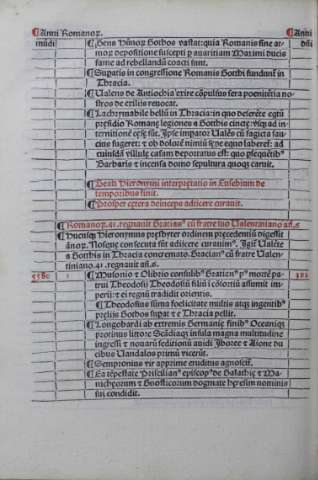 ¶Anni Romanoꝝ. ¶Anni
mūdi ¶Gens Hūnoꝝ Gothos vastat: quia Romanis sine ar- dn̄i
moꝝ depositione suscepti p auaritiam Maximi ducis
fame ad rebellandū coacti sunt.
¶Supatis in congressione Romanis Gotthi fundunt̄ in
Thracia.
¶Valens de Antiochia exire cōpulsus sera pœnitētia no-
stros de exiliis reuocat.
¶Lachrymabile bellū in Thracia: in quo deserēte eqtū
presidio Romanę legiones a Gotthis cinctę vsq ad in-
ternitionē cęsę sūt. Ipse imperator Valēs cū sagitta sau-
cius fugeret: & ob dolorē nimiū sępe equo laberet̄: ad
cuiusdā villulę casam deportatus est: quo pseqūtib
Barbaris & incensa domo sepultura quoqȝ caruit.
¶Beati Hieronymi interpretatio in Eusebium de
temporibus finit.
¶Prosper cętera deinceps curauit adiicere.
¶Romanoꝝ .41. regnauit Gratian cū fratre suo Valentiniano añ. 6
¶Hucusqȝ Hieronymus presbyter ordinem precedentiū digessit
annoꝝ. Nosqȝ consecuta sūt adiicere curauim. Igit̄ Valēte
a Gotthis in Thracia concremato. Gratian cū fratre Valen-
tiniano .41. regnauit añ. 6.
1 ¶Ausonio & Olibrio consulib Gratian p mortē pa-
trui Theodosiū Theodosii filiū ī cōsortiū assumit im-
perii: & ei regnū tradidit orientis.
¶Theodosius summa foelicitate multis atqȝ ingentib
pręliis Gothos supat & e Thracia pellit.
¶Longobardi ab extremis Germanię finib Oceaniqȝ
protinus littore Scādiaqȝ insula magna multitudine
ingressi & nouarū sedium auidi Iborea & Aione du
cibus Vandalos primū vicerūt.
¶Sempronius vir apprime eruditus agnoscit̄.
¶Ea tēpestate Priscillian episcop de Galathię & Ma-
nichęorum & Gnosticorum dogmate hęresim nominis
sui condidit.